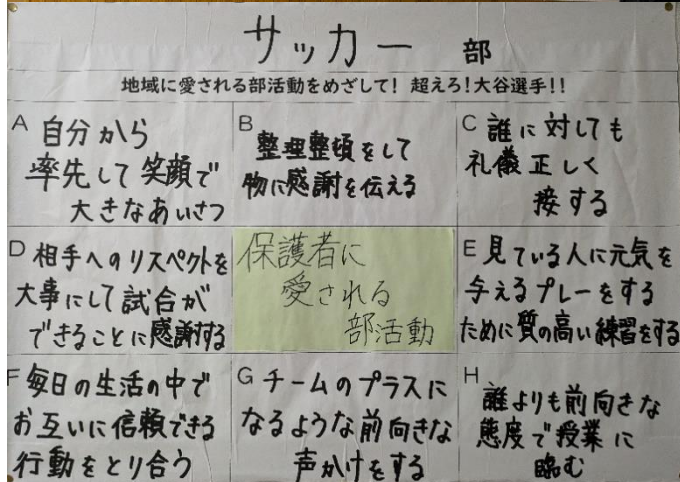 サッカー 部
地域に愛される部活動をめざして! 超えろ!大谷選手!!
A 自分から
率先して笑顔で
大きなあいさつ
B
整理整頓をして
物に感謝を伝える
C 誰に対しても
礼儀正しく
接する
D 相手へのリスペクトを
大事にして試合が
できることに感謝する
保護者に
愛される
部活動
E 見ている人に元気を
与えるプレーをする
ために質の高い練習をする
F 毎日の生活の中で
お互いに信頼できる
行動をとり合う
G チームのプラスに
なるような前向きな
声かけをする
H
誰よりも前向きな
態度で授業に
臨む